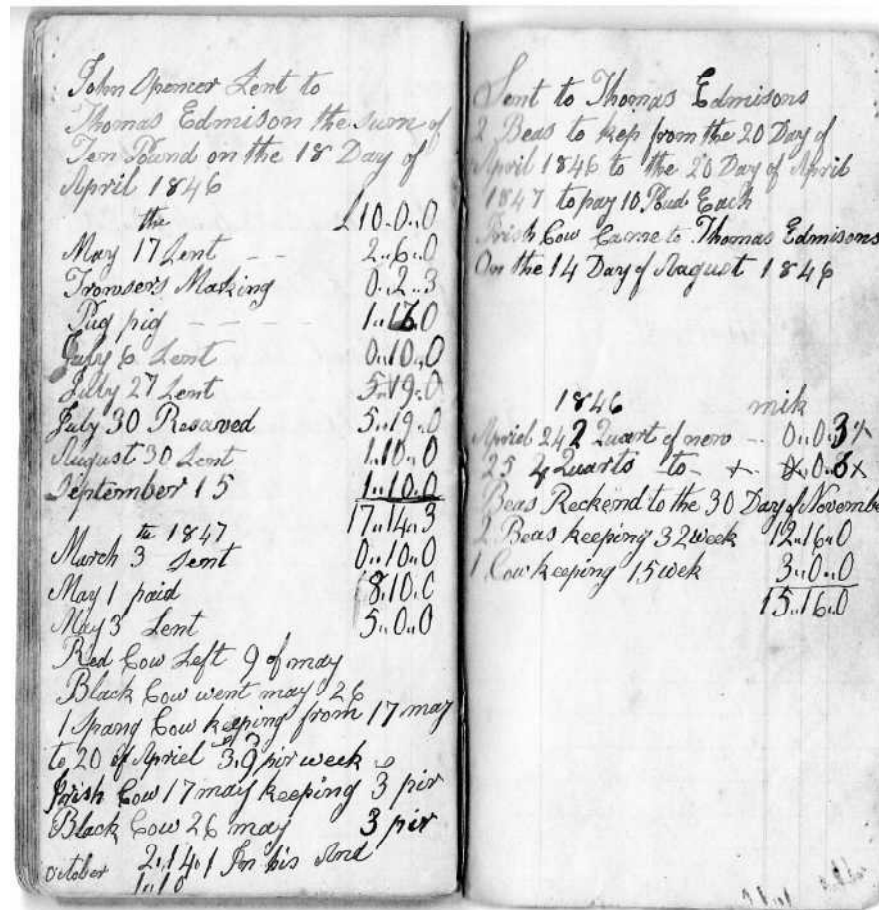 John Spencer Lent to
Thomas Edmison the sum of
Ten Pound on the 18 Day of
April 1846
the £10..0..0
May 17 Lent - - 2..6..0
Trowsers Making 0..2..3
Pug pig - - - - 1..16..0
July 6 Lent 0..10..0
July 27 Lent 5..19..0
July 30 Resaved 5..19..0
August 30 Lent 1..10..0
September 15 1..10..0
17..14..3
th 1847
March 3 Sent 0..10..0
May 1 paid 8..10..0
May 3 Lent 5..0..0
Red Cow Left 9 of may
Black Cow went may 26
1 Spang Cow keeping from 17 may
to 20 of Apriel 3..9 pir week
Irish Cow 17 may keeping 3 pir
Black Cow 26 may 3 pir
October 2..14..1 In his And
1..10
Sent to Thomas Edmisons
2 Beas to kep from the 20 Day of
April 1846 to the 20 Day of April
1847 to pay 10 Pud Each
Irish Cow Came to Thomas Edmisons
On the 14 Day of August 1846
1846 mik
Apriel 24 2 Quart of new - 0..0..3
25 4 Quarts to - 0..8
Beas Reckend to the 30 Day of Novembe
2 Beas keeping 32 week 12..16..0
1 Cow keeping 15 wek 3..0..0
15..16..0